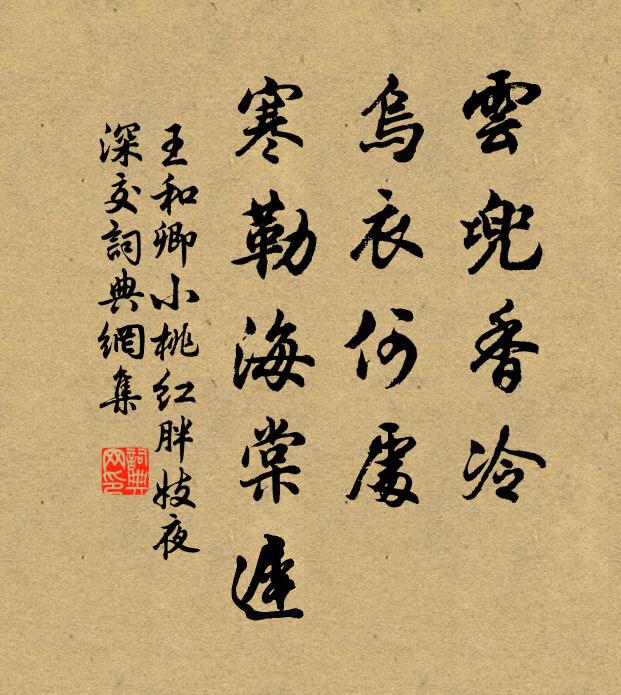 雲兜香冷
烏衣何處
寒勒海棠遲
王和卿小桃红胖妓夜
深交詞典網集
詞典網印